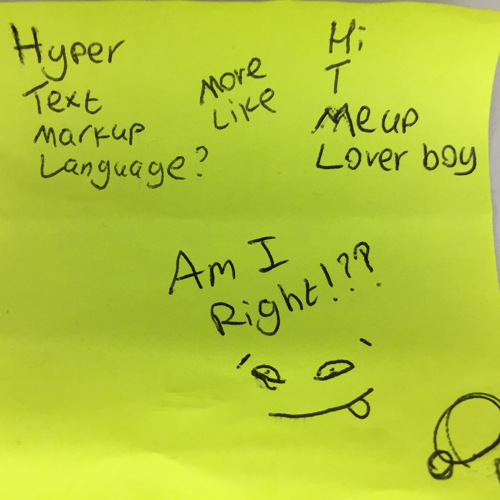 Hyper
Text
Markup
Language?
More
Like
Hi
T
Me up
Lover boy
Am I
Right!???